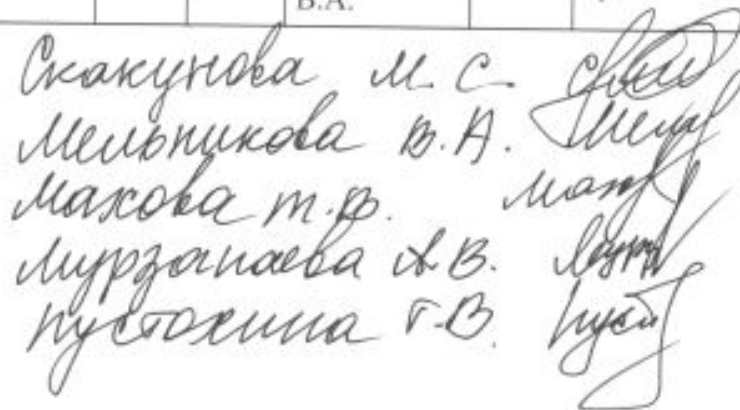 В.А.
Скакунова М. С.
Мельникова В. А.
Махова Т. В.
Мурзанаева А В.
Пустохина Г. В.